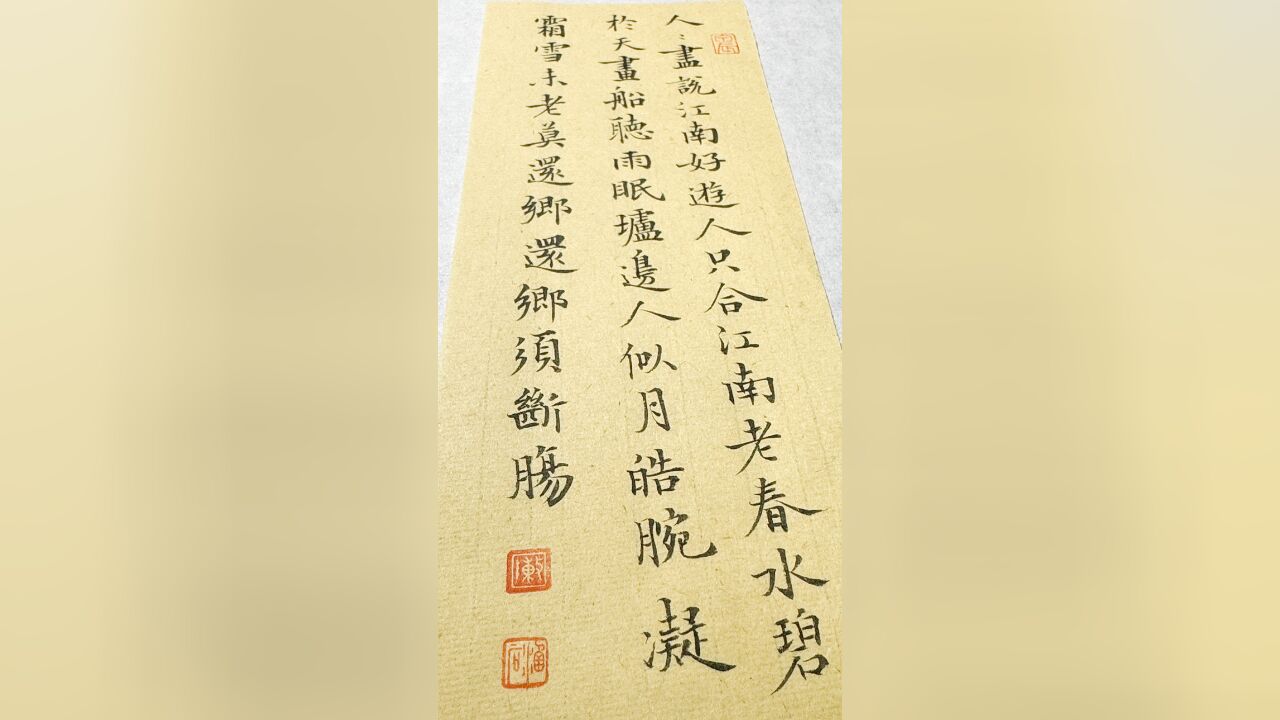 人〻盡說江南好遊人只合江南老春水碧
於天畫船聽雨眠壚邊人似月皓腕凝
霜雪未老莫還鄉還鄉須斷腸